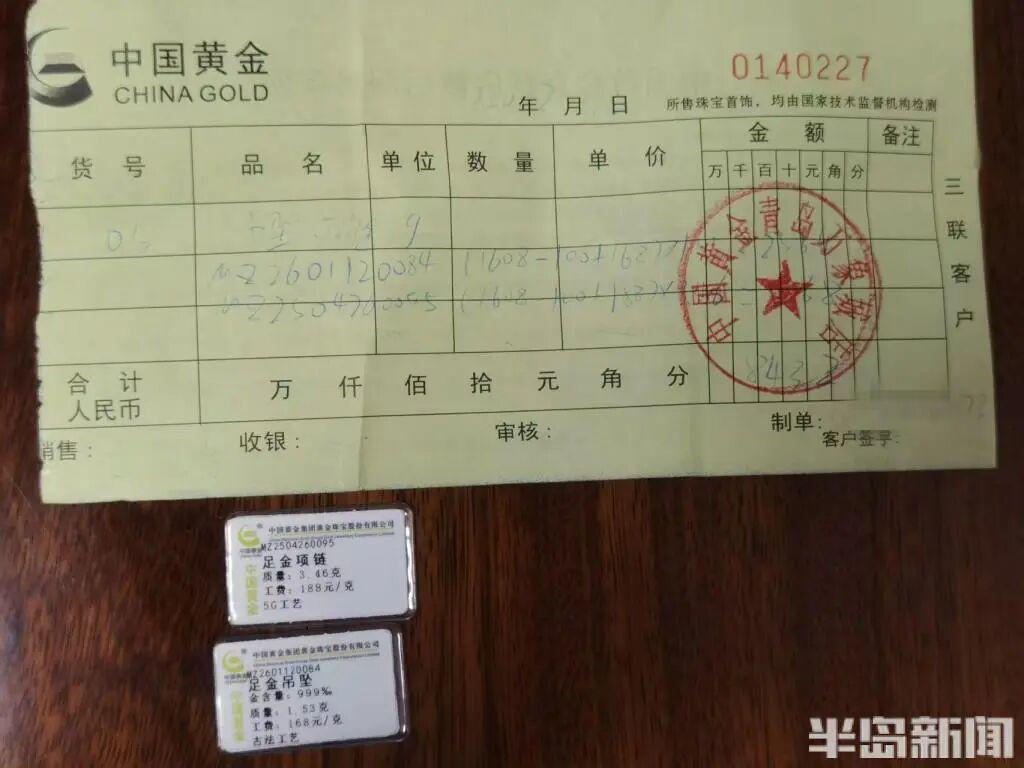 中国黄金
CHINA GOLD
0140227
年 月 日
所售珠宝首饰，均由国家技术监督机构检测
货号 品名 单位 数量 单价 金额 备注
万 千 百 十 元 角 分
g
MZ2601120084
合计
人民币
万 仟 佰 拾 元 角 分
销售：
收银：
审核：
制单：
客户签字：
三联客户
中国黄金青岛万象城店
中国黄金集团黄金珠宝股份有限公司
MZ2504260095
足金项链
质量：3.46克
工费：188元/克
5G工艺
中国黄金
中国黄金集团黄金珠宝股份有限公司
MZ2601120084
足金吊坠
金含量：999‰
质量：1.53克
工费：168元/克
古法工艺
中国黄金
半岛新闻